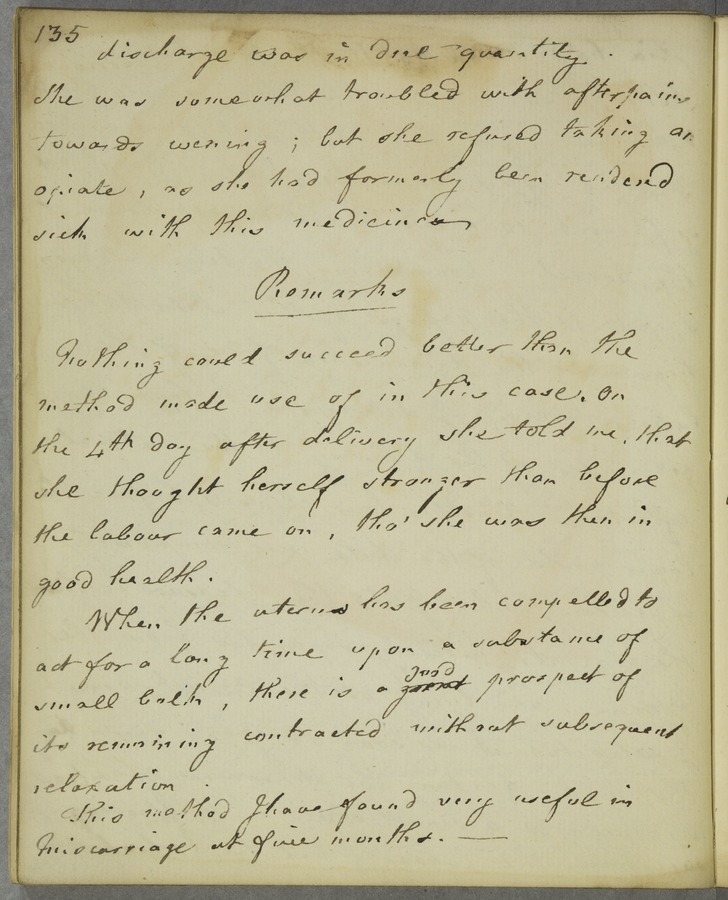 135
discharge was in due quantity.
She was somewhat troubled with afterpains
towards evening; but she refused taking an
opiate, as she had formerly been rendered
sick with this medicine
Remarks
Nothing could succeed better than the
method made use of in this case. On
the 4th day after delivery she told me, that
she thought herself stronger than before
the labour came on, tho' she was then in
good health.
When the uterus has been compelled to
act for a long time upon a substance of
good
small bulk, there is a great prospect of
its remaining contracted without subsequent
relaxation.
This method I have found very useful in
Miscarriage at five months. —